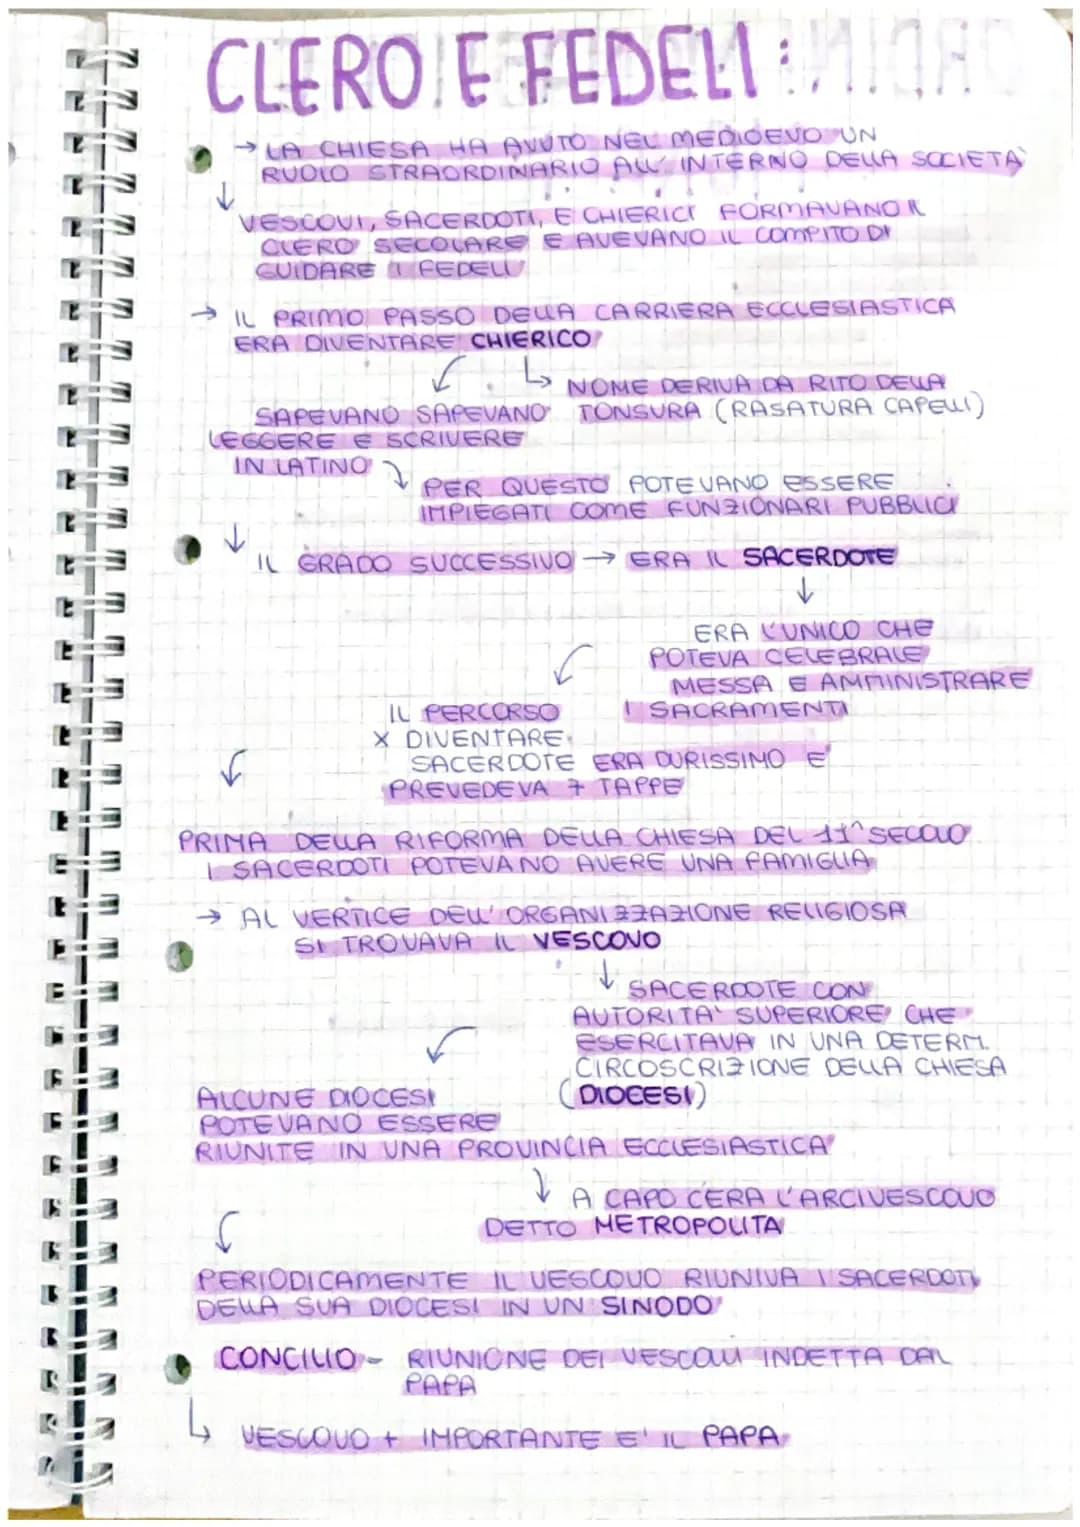 CLERO E FEDELI:
→ LA CHIESA HA AVUTO NEL MEDIOEVO UN
RUOLO STRAORDINARIO ALL' INTERNO DELLA SOCIETÀ
↓
VESCOVI, SACERDOTI, E CHIERICI FORMAVANO IL
CLERO SECOLARE E AVEVANO IL COMPITO DI
GUIDARE I FEDELI
→ IL PRIMO PASSO DELLA CARRIERA ECCLESIASTICA
ERA DIVENTARE CHIERICO
↳ NOME DERIVA DA RITO DELLA
TONSURA (RASATURA CAPELLI)
SAPEVANO SAPEVANO
LEGGERE E SCRIVERE
IN LATINO
PER QUESTO POTEVANO ESSERE
IMPIEGATI COME FUNZIONARI PUBBLICI
↓
IL GRADO SUCCESSIVO → ERA IL SACERDOTE
↓
ERA L'UNICO CHE
POTEVA CELEBRALE
MESSA E AMMINISTRARE
I SACRAMENTI
IL PERCORSO
X DIVENTARE
SACERDOTE ERA DURISSIMO E
PREVEDEVA 7 TAPPE
PRIMA DELLA RIFORMA DELLA CHIESA DEL 11^ SECOLO
I SACERDOTI POTEVANO AVERE UNA FAMIGLIA
→ AL VERTICE DELL' ORGANIZZAZIONE RELIGIOSA
SI TROVAVA IL VESCOVO
↓ SACERDOTE CON
AUTORITA' SUPERIORE CHE
ESERCITAVA IN UNA DETERM.
CIRCOSCRIZIONE DELLA CHIESA
(DIOCESI)
ALCUNE DIOCESI
POTEVANO ESSERE
RIUNITE IN UNA PROVINCIA ECCLESIASTICA
↓ A CAPO C'ERA L'ARCIVESCOVO
DETTO METROPOLITA
PERIODICAMENTE IL VESCOVO RIUNIVA I SACERDOTI
DELLA SUA DIOCESI IN UN SINODO
CONCILIO - RIUNIONE DEI VESCOVI INDETTA DAL
PAPA
↳ VESCOVO + IMPORTANTE E' IL PAPA